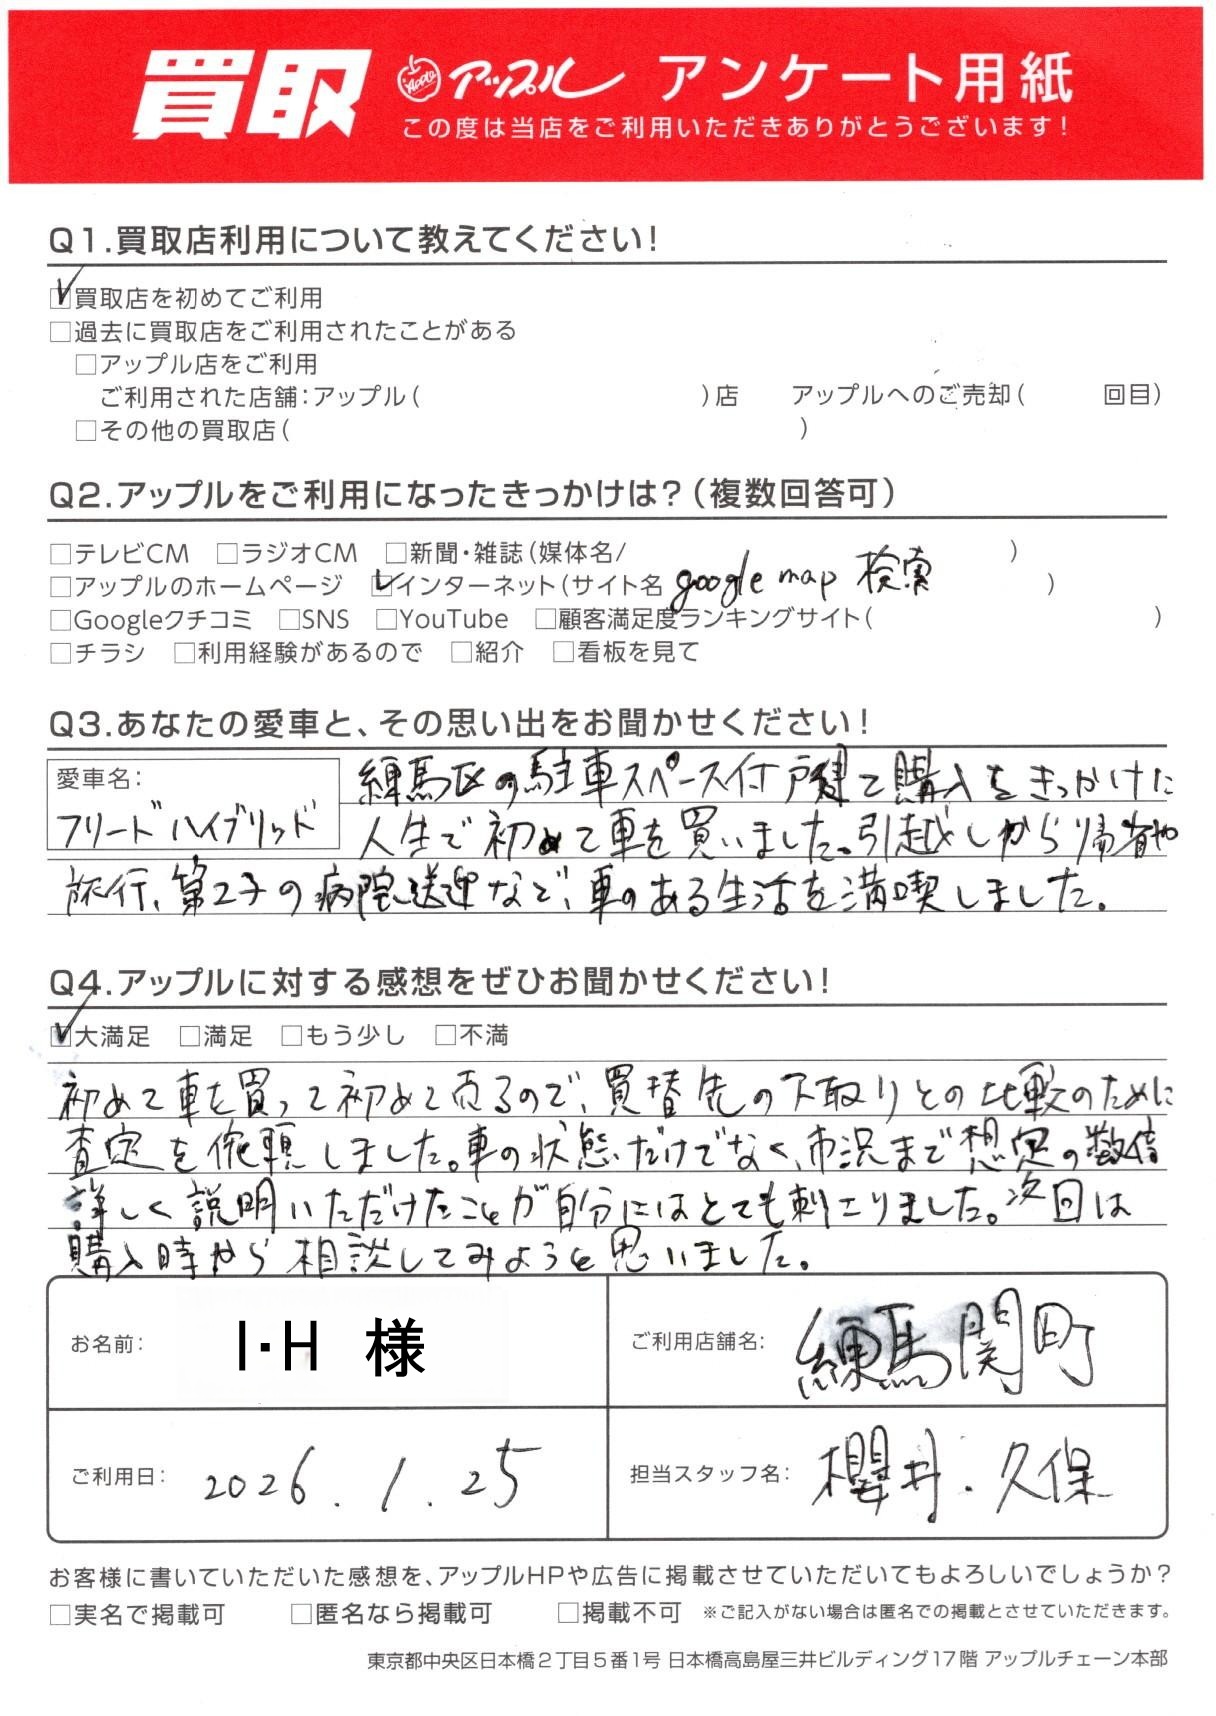 買取 Apple アップル アンケート用紙
この度は当店をご利用いただきありがとうございます!
Q1.買取店利用について教えてください!
☑買取店を初めてご利用
□過去に買取店をご利用されたことがある
□アップル店をご利用
ご利用された店舗:アップル( )店 アップルへのご売却( 回目)
□その他の買取店( )
Q2.アップルをご利用になったきっかけは?(複数回答可)
□テレビCM □ラジオCM □新聞・雑誌(媒体名/ )
□アップルのホームページ ☑インターネット(サイト名 google map 検索 )
□Googleクチコミ □SNS □YouTube □顧客満足度ランキングサイト( )
□チラシ □利用経験があるので □紹介 □看板を見て
Q3.あなたの愛車と、その思い出をお聞かせください!
愛車名:
フリードハイブリッド
練馬区の駐車スペース付戸建て購入をきっかけに
人生で初めて車を買いました。引越しから帰省や
旅行、第2子の病院送迎などで、車のある生活を満喫しました。
Q4.アップルに対する感想をぜひお聞かせください!
☑大満足 □満足 □もう少し □不満
初めて車を買って初めて売るので、買替先の下取りとの比較のために
査定を依頼しました。車の状態だけでなく、市況まで想定の数倍
詳しく説明いただけたことが自分にはとても刺さりました。次回は
購入時から相談してみようと思いました。
お名前: I・H 様
ご利用店舗名: 練馬関町
ご利用日: 2026.1.25
担当スタッフ名: 櫻井.久保
お客様に書いていただいた感想を、アップルHPや広告に掲載させていただいてもよろしいでしょうか?
□実名で掲載可 □匿名なら掲載可 □掲載不可 ※ご記入がない場合は匿名での掲載とさせていただきます。
東京都中央区日本橋2丁目5番1号 日本橋高島屋三井ビルディング17階 アップルチェーン本部